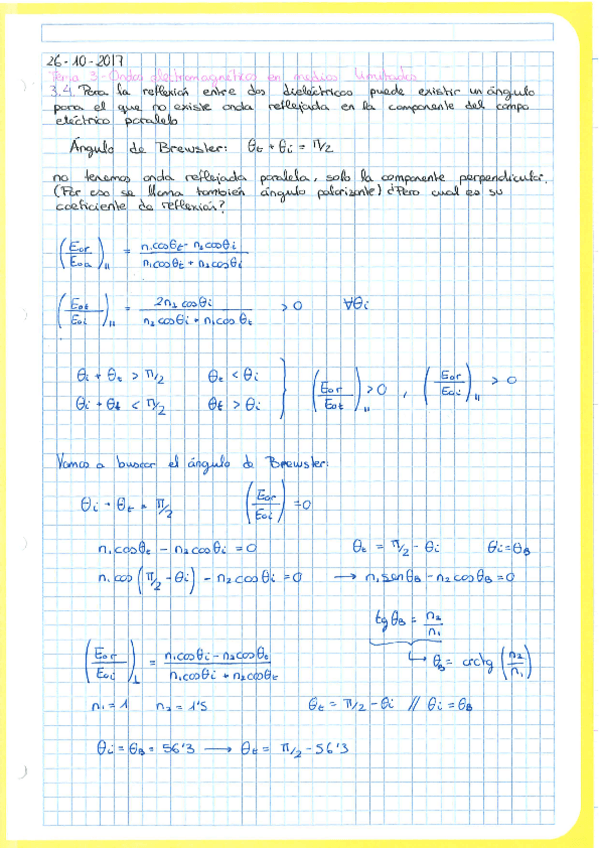 26-10-2017
Tema 3 - Ondas electromagnéticas en medios limitados
3.4. Para la reflexión entre dos dieléctricos puede existir un ángulo
para el que no existe onda reflejada en la componente del campo
eléctrico paralelo
Ángulo de Brewster: θt + θi = π/2
no tenemos onda reflejada paralela, solo la componente perpendicular.
(Por eso se llama también ángulo polarizante) ¿Pero cual es su
coeficiente de reflexión?
(Eor/Eoa)‖ = (n₁cosθt - n₂cosθi)/(n₁cosθt + n₂cosθi)
(Eot/Eoi)‖ = (2n₂ cosθi)/(n₂cosθi + n₁cosθt) > 0 ∀θi
θi + θt > π/2 θt < θi
θi + θt < π/2 θt > θi } (Eor/Eot)‖ > 0 , (Eor/Eoi)‖ > 0
Vamos a buscar el ángulo de Brewster:
θi + θt = π/2 (Eor/Eoi) = 0
n₁cosθt - n₂cosθi = 0 θt = π/2 - θi θi = θB
n₁cos(π/2 - θi) - n₂cosθi = 0 → n₁senθB - n₂cosθB = 0
tgθB = n₂/n₁
↳ θB = arctg(n₂/n₁)
(Eor/Eoi)⊥ = (n₁cosθi - n₂cosθt)/(n₁cosθi + n₂cosθt)
n₁ = 1 n₂ = 1'5 θt = π/2 - θi // θi = θB
θi = θB = 56'3 → θt = π/2 - 56'3